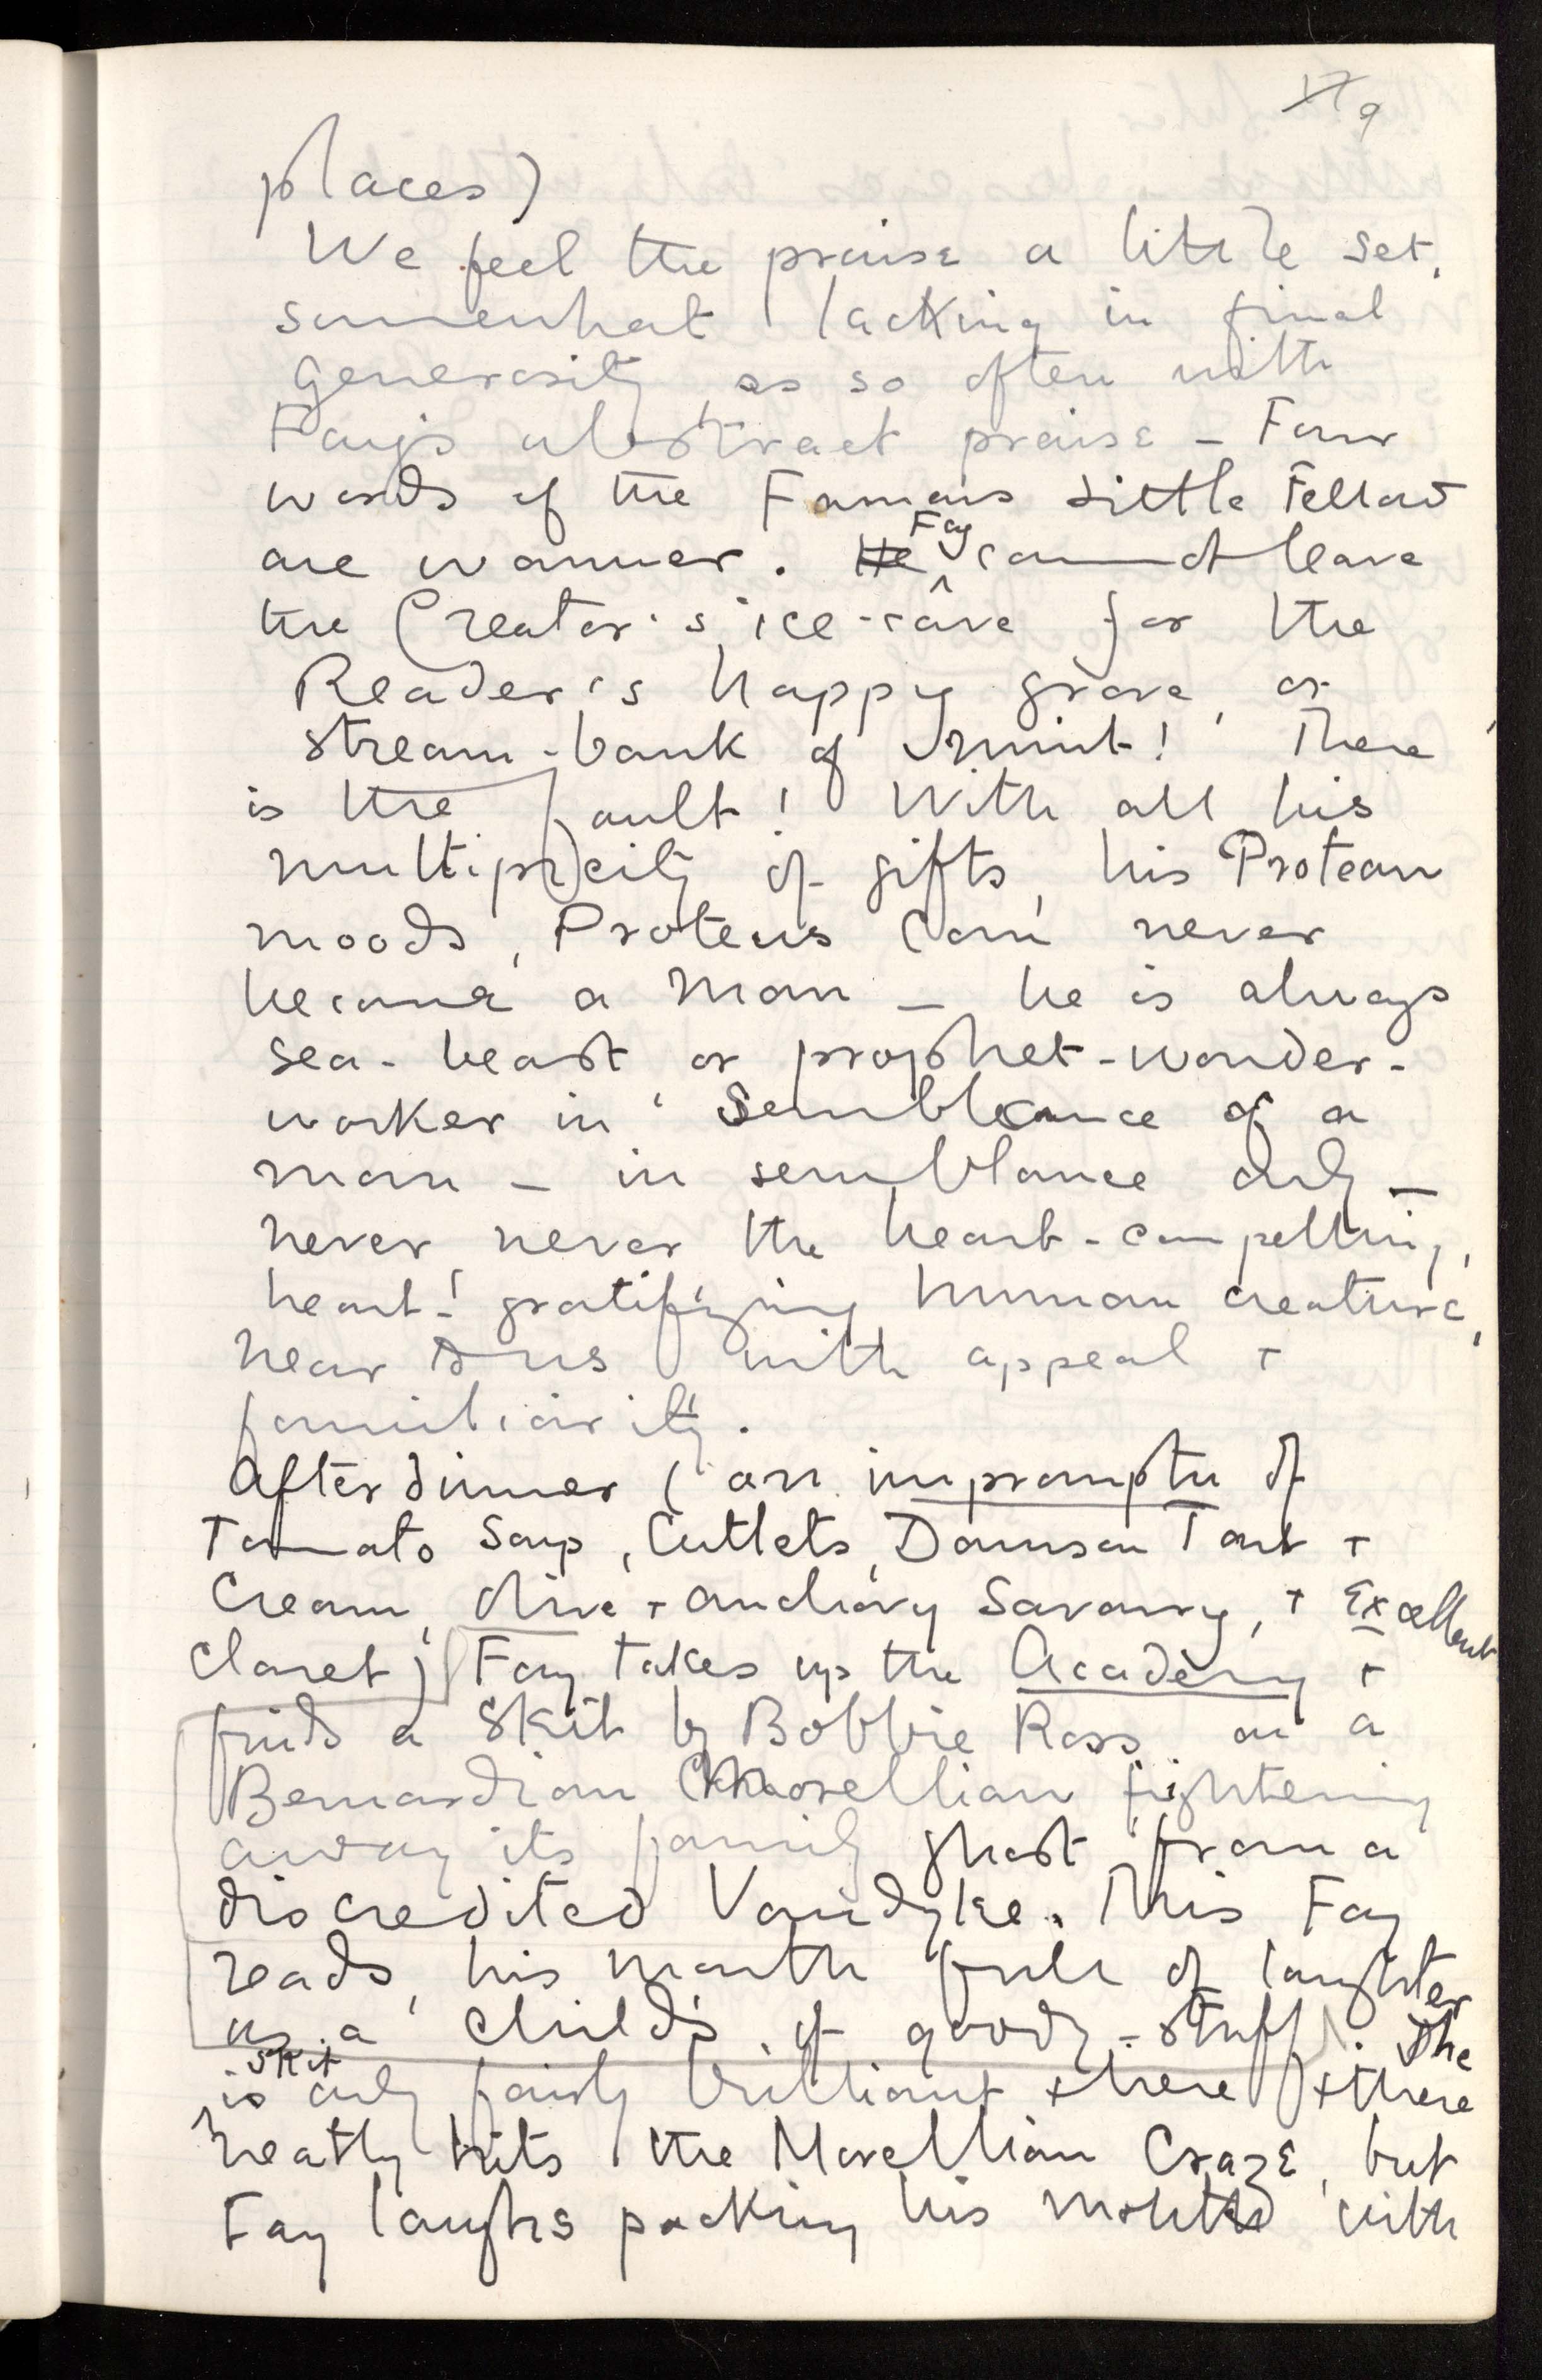 9
places)
We feel the praise a little set,
somewhat lacking in final
generosity, as so often with
Fay's abstract praise – Four
words of the Famous Little Fellow
are warmer. He Fay cannot leave
the Creator's ice-cave for the
Reader's happy grove, or
stream-bank of mint! There
is the fault! With all his
multiplicity of gifts, his Protean
moods, Proteus can never
become a man – he is always
sea-beast or prophet-wonder-
worker in semblance of a
man – in semblance only –
never, never the heart-compelling,
heart-gratifying human creature,
near to us with appeal +
familiarity.
After dinner (an impromptu of
Tomato Soup, Cutlets, Damson Tart +
Cream, Olive + anchovy Savoury, + Excellent
Claret) Fay takes up the Academy +
finds a Skit by Bobbie Ross on a
Bernardian Morellian fightening
away its family ghost from a
discredited Vandyke. This Fay
reads, his mouth full of laughter
as a child's of goody-stuff. The
skit
is only fairly brilliant + here + there
neatly hits the Morellian Craze, but
Fay laughs packing his mouth with